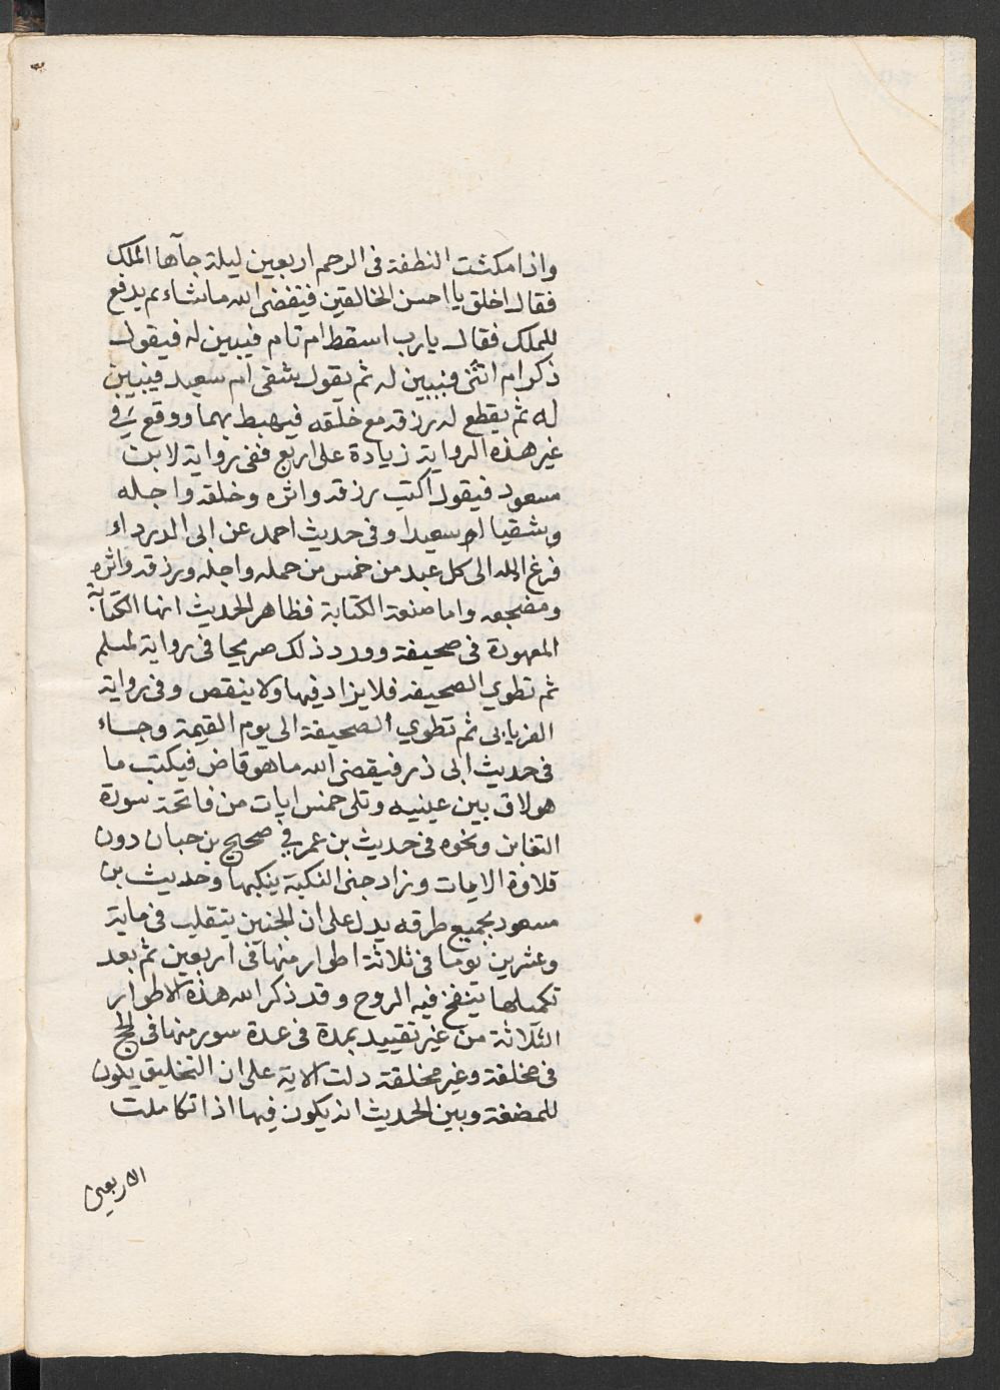 واذا مكثت النطفة فى الرحم اربعين ليلة جآها الملك
فقال اخلق يا احسن الخالقين فيقضى الله ماشاء ثم يدفع
للملك فقال يارب اسقط ام تام فيبين له فيقول
ذكر ام انثى فيبين له ثم يقول شقى ام سعيد فيبين
له ثم يقطع له رزقه مع خلقه فيهبط بهما ووقع في
غير هذه الرواية زيادة على اربع ففى رواية لابن
مسعود فيقول اكتب رزقه واثره وخلقه واجله
وشقيا او سعيدا وفى حديث احمد عن ابى الدرداء
فرغ الله الى كل عبد من خمس من حمله واجله ورزقه واثره
ومضجعه واما صنعة الكتابة فظاهر الحديث انها الكتابة
المعهودة فى صحيفة وورد ذلك صريحا فى رواية لمسلم
ثم تطوي الصحيفه فلا يزاد فيها ولا ينقص وفى رواية
الفريابى ثم تطوي الصحيفة الى يوم القيمة وجاء
فى حديث ابى ذر فيقضى الله ما هو قاض فيكتب ما
هو لاق بين عينيه وتلى خمس ايات من فاتحة سورة
التغابن ونحوه فى حديث بن عمر في صحيح بن حبان دون
تلاوة الايات وزاد حتى النكبة ينكبها وحديث بن
مسعود بجميع طرقه يدل على ان الجنين يتقلب فى ماية
وعشرين يوما فى ثلاثة اطوار منها فى اربعين ثم بعد
تكميلها ينفخ فيه الروح وقد ذكر الله هذه الاطوار
الثلاثة من غير تقييد بمدة فى عدة سور منها فى الحج
فى مخلقة وغير مخلقة دلت الاية على ان التخليق يكون
للمضغة وبين الحديث انه يكون فيها اذا تكاملت
الاربعين